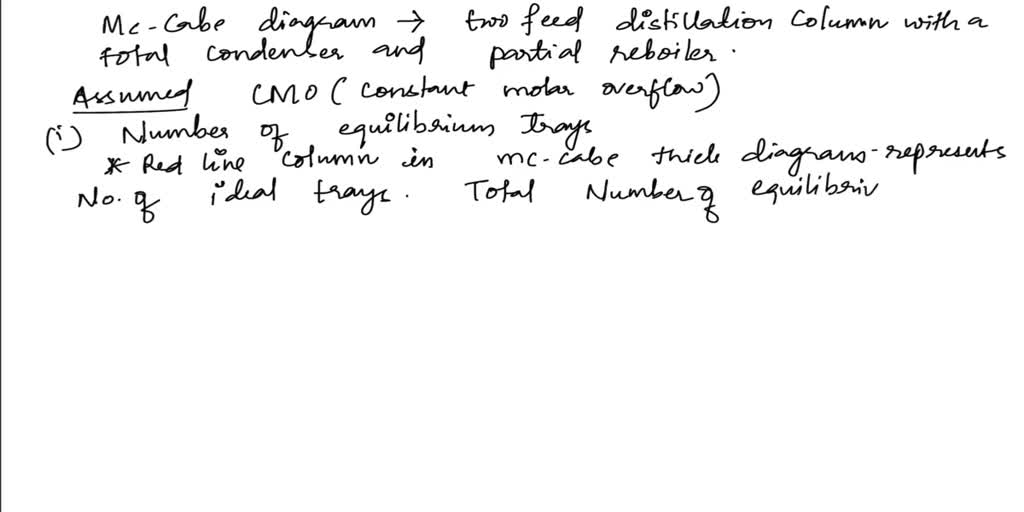 Mc-Cabe diagram → two feed distillation column with a
total condenser and partial reboiler.
Assumed CMO (constant molar overflow)
(i) Number of equilibrium trays
* Red line column in mc-cabe thiele diagram-represents
No. of ideal trays. Total Number of equilibriu